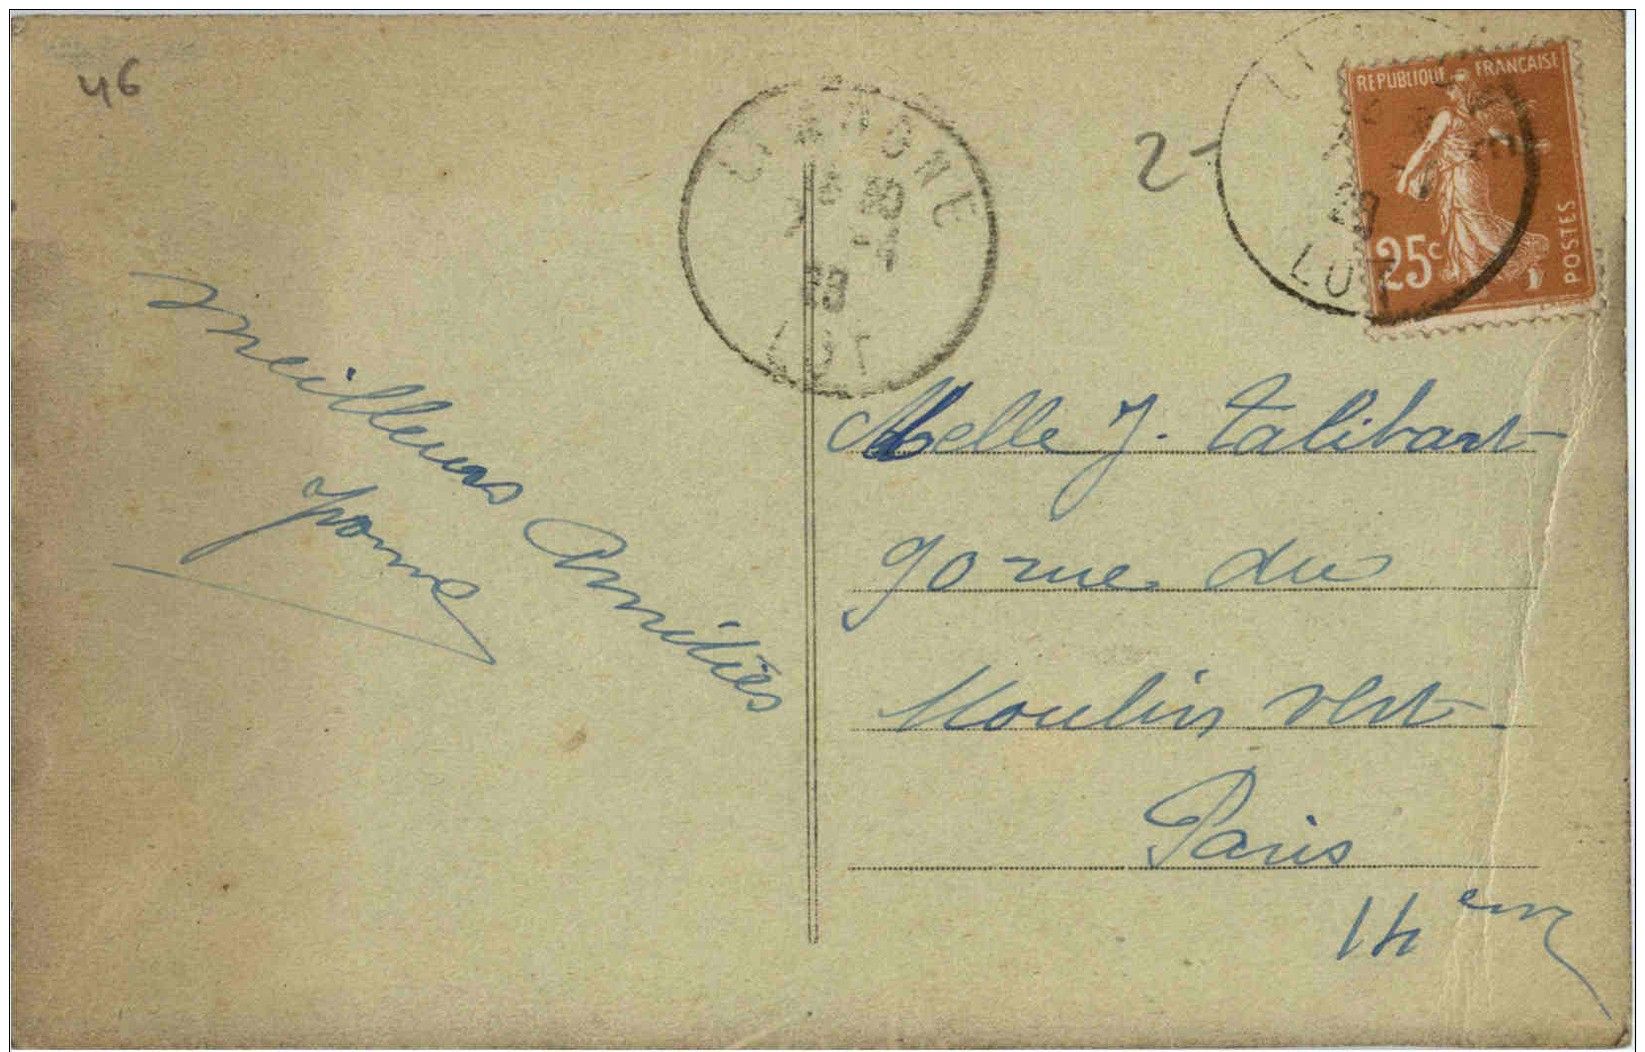 46
2-
LIMOGNE
LOT
REPUBLIQUE FRANCAISE
25c
POSTES
LOT
meilleures Amitiés
Yvonne
Melle J. Talibart
90 rue du
Moulin Vert
Paris
14ème